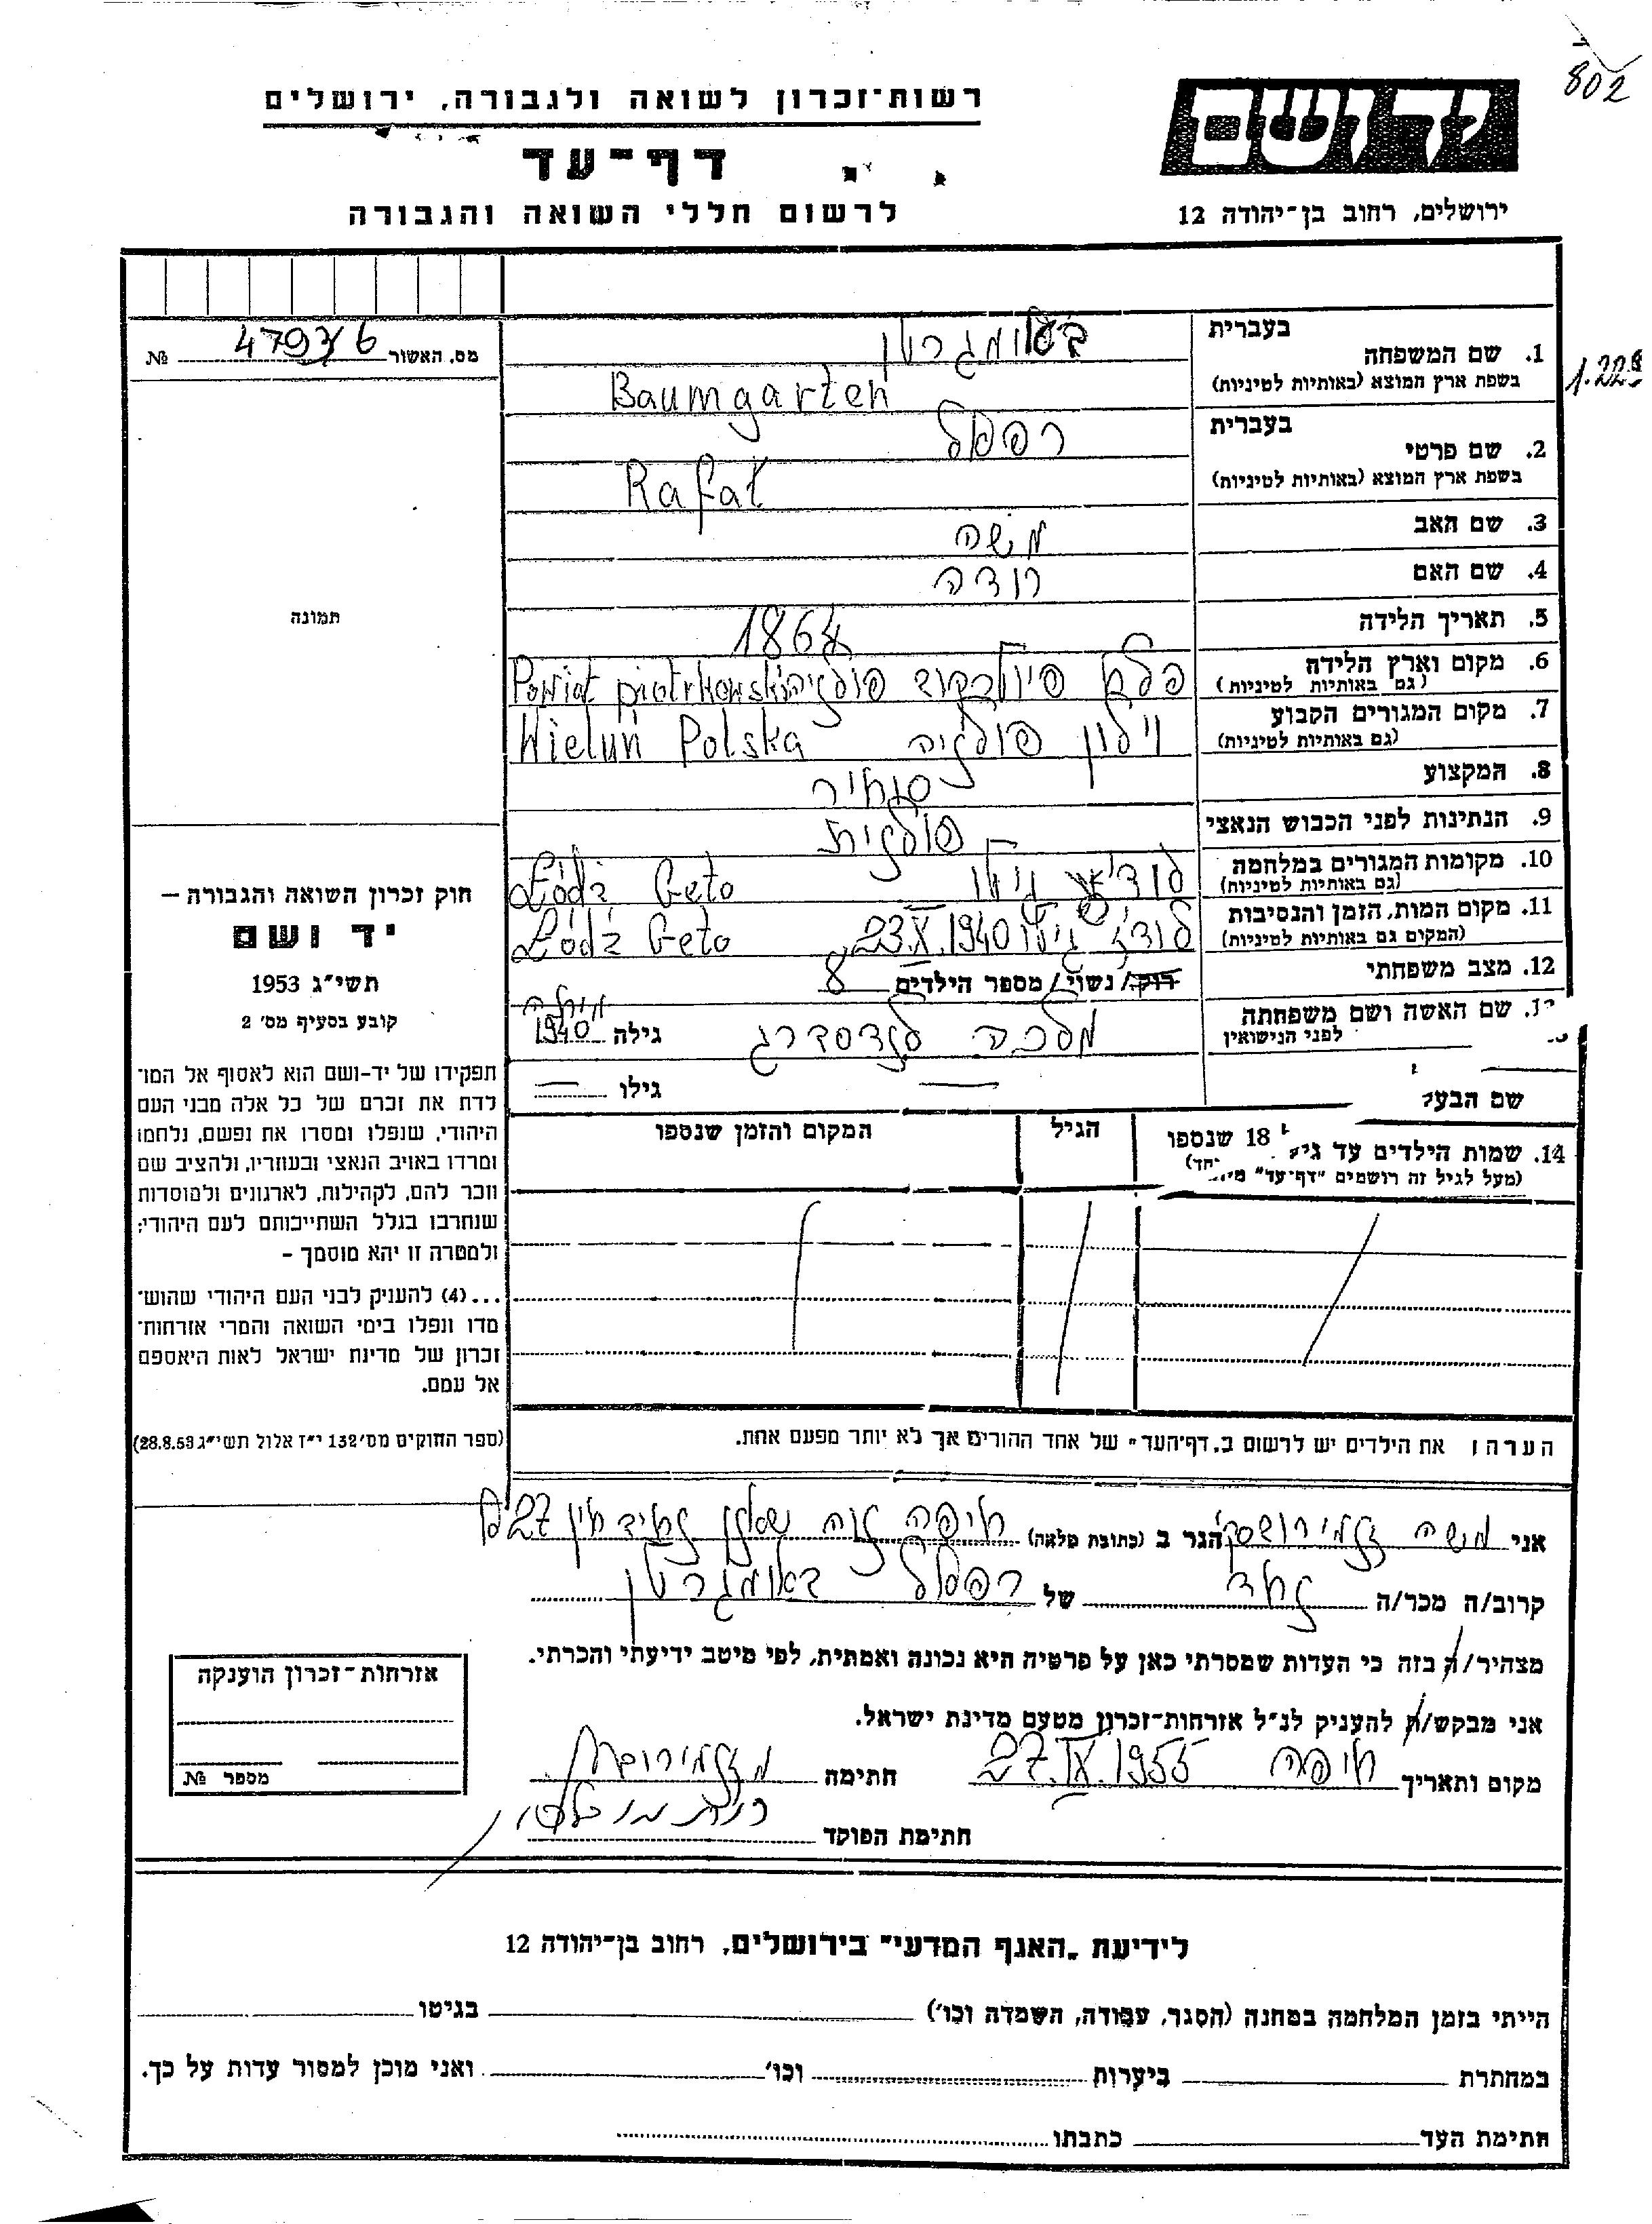 802
רשות־זכרון לשואה ולגבורה, ירושלים
יד ושם
דף־עד
לרשום חללי השואה והגבורה
ירושלים, רחוב בן־יהודה 12
מס. האשור 47936 №
1.228
בעברית
1. שם המשפחה באומגרטן
בשפת ארץ המוצא (באותיות לטיניות) Baumgarten
בעברית
2. שם פרטי רפאל
בשפת ארץ המוצא (באותיות לטיניות) Rafał
3. שם האב משה
4. שם האם
5. תאריך הלידה 1864
6. מקום וארץ הלידה פלך פיוטרקוב פולניה Powiat piotrkowski
(גם באותיות לטיניות)
7. מקום המגורים הקבוע וילון פולניה Wieluń Polska
(גם באותיות לטיניות)
8. המקצוע סוחר
9. הנתינות לפני הכבוש הנאצי פולנית
10. מקומות המגורים במלחמה לודז' גיטו Łódź Geto
(גם באותיות לטיניות)
11. מקום המות, הזמן והנסיבות לודז' גיטו 23.X.1940 Łódź Geto
(המקום גם באותיות לטיניות)
12. מצב משפחתי רוק/נשוי/מספר הילדים 8
שם האשה ושם משפחתה מלכה לנדסברג גילה 1940
לפני הנישואין
שם הבעל גילו
14. שמות הילדים עד גיל 18 שנספו הגיל המקום והזמן שנספו
(מעל לגיל זה רושמים "דף־עד" מיוחד)
הערה: את הילדים יש לרשום ב"דף־העד" של אחד ההורים אך לא יותר מפעם אחת.
תמונה
חוק זכרון השואה והגבורה –
יד ושם
תשי"ג 1953
קובע בסעיף מס' 2
תפקידו של יד-ושם הוא לאסוף אל המו־
לדת את זכרם של כל אלה מבני העם
היהודי, שנפלו ומסרו את נפשם, נלחמו
ומרדו באויב הנאצי ובעוזריו, ולהציב שם
וזכר להם, לקהילות, לארגונים ולמוסדות
שנחרבו בגלל השתייכותם לעם היהודי;
ולמטרה זו יהא מוסמך –
...(4) להעניק לבני העם היהודי שהוש־
מדו ונפלו בימי השואה והמרי אזרחות־
זכרון של מדינת ישראל לאות היאספם
אל עמם.
(ספר החוקים מס' 132 י"ז אלול תשי"ג 28.8.53)
אני משה הגר ב (כתובת מלאה) חיפה נוה שאנן 27
קרוב/ה מכר/ה נכד של רפאל באומגרטן
מצהיר/ה בזה כי העדות שמסרתי כאן על פרטיה היא נכונה ואמתית, לפי מיטב ידיעתי והכרתי.
אני מבקש/ת להעניק לנ"ל אזרחות־זכרון מטעם מדינת ישראל.
מקום ותאריך חיפה 27.IX.1955 חתימה
חתימת הפוקד
אזרחות־זכרון הוענקה
מספר №
לידיעת "האגף המדעי" בירושלים, רחוב בן־יהודה 12
הייתי בזמן המלחמה במחנה (הסגר, עבודה, השמדה וכו') בגיטו
במחתרת ביערות וכו' ואני מוכן למסור עדות על כך.
חתימת העד כתבתו